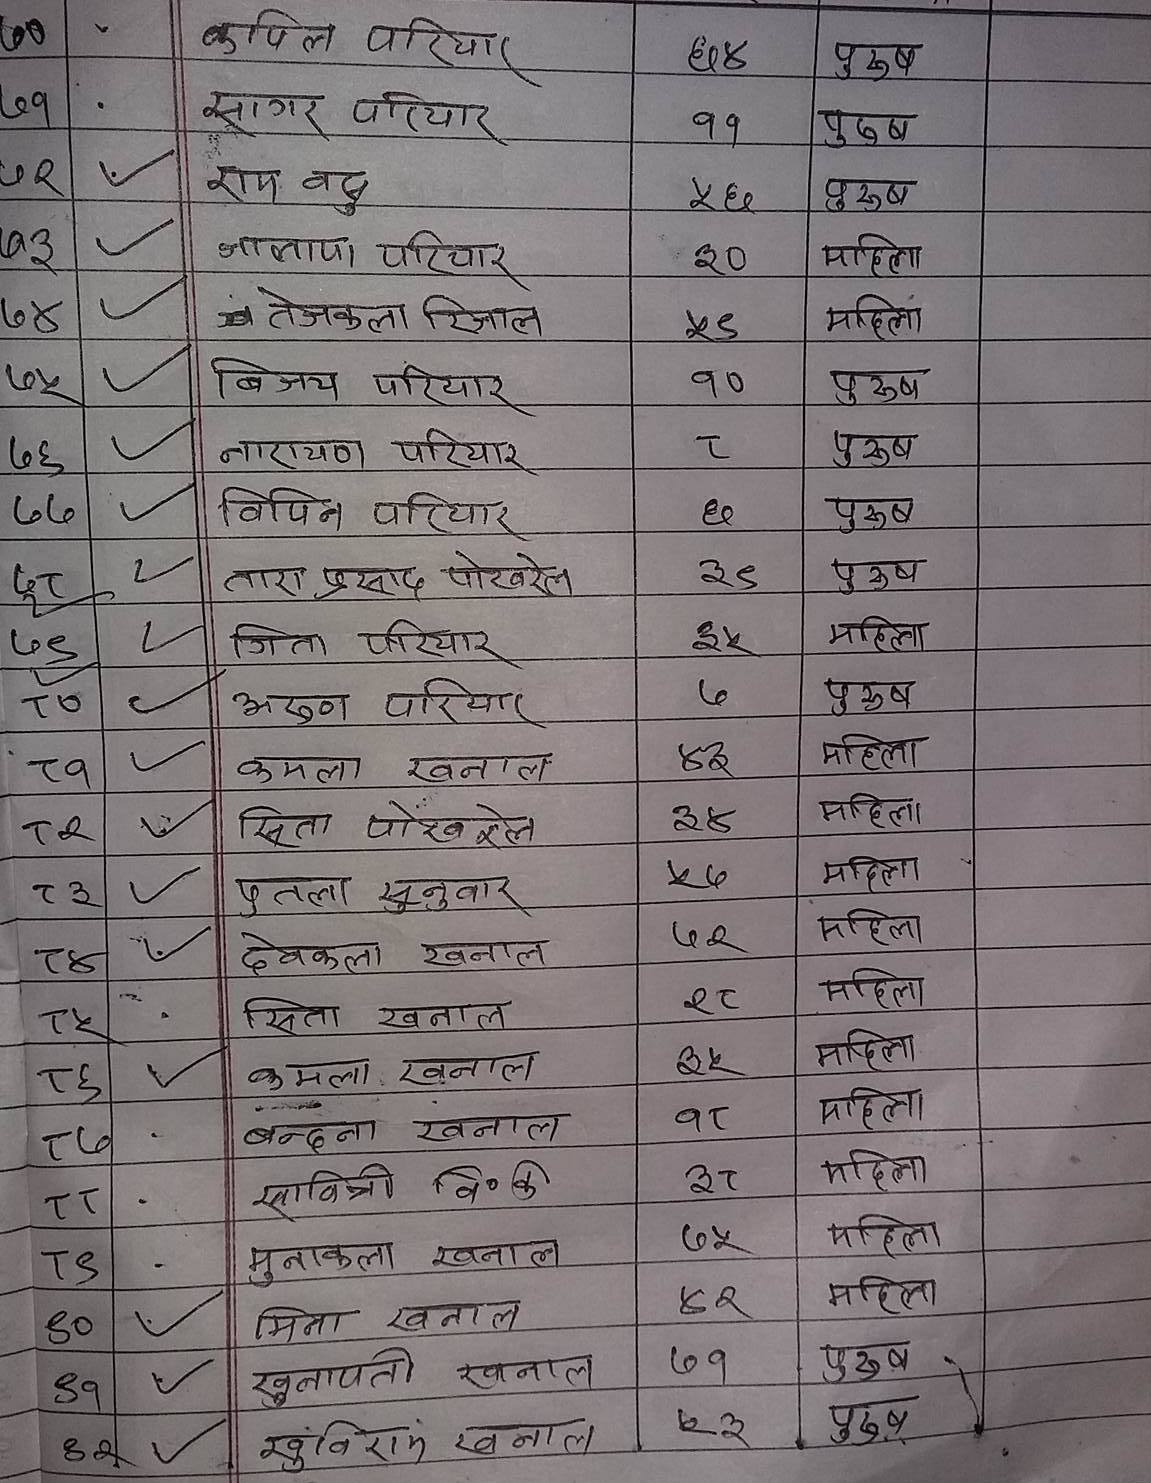 ७० कपिल परियार ६४ पुरुष
७१ सागर परियार ११ पुरुष
७२ राम बद्दु ५६ पुरुष
७३ परियार ३० महिला
७४ तेजकला रिजाल ५९ महिला
७५ बिजय परियार १० पुरुष
७६ नारायण परियार ८ पुरुष
७७ विपिन परियार ६ पुरुष
७८ तारा प्रसाद पोखरेल ३९ पुरुष
७९ जिता परियार ३५ महिला
८० अरुण परियार ७ पुरुष
८१ कमला खनाल ४३ महिला
८२ सिता पोखरेल ३४ महिला
८३ पुतला सुनुवार ५७ महिला
८४ देवकला खनाल ७२ महिला
८५ सिता खनाल २८ महिला
८६ कमला खनाल ३५ महिला
८७ बन्दना खनाल १८ महिला
८८ सावित्री वि॰क ३८ महिला
८९ मुनाकला खनाल ७५ महिला
९० मिना खनाल ४२ महिला
९१ खनाल ७१ पुरुष
९२ खनाल ५३ पुरुष